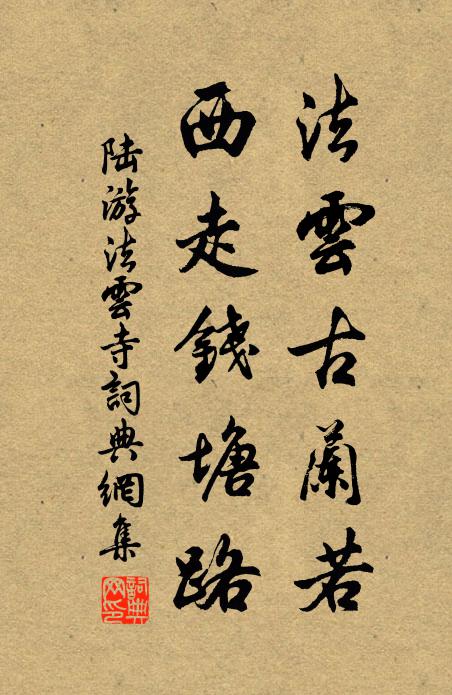 法雲古蘭若
西走錢塘路
陆游法雲寺詞典網集
詞典网印